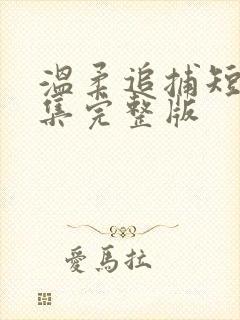 温柔追捕短
集完整版
爱马拉